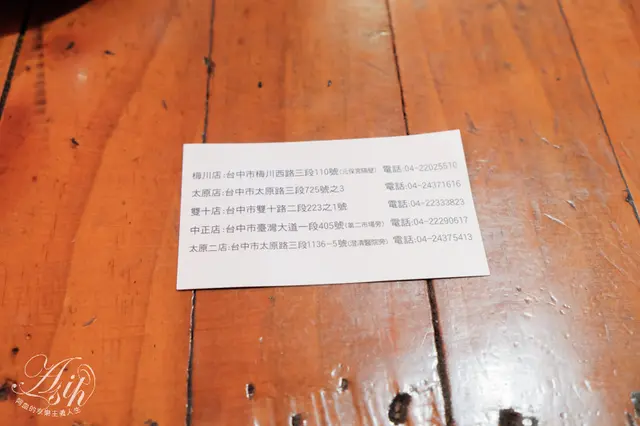 梅川店:台中市梅川西路三段110號(元保宮隔壁) 電話:04-22025510
太原店:台中市太原路三段725號之3 電話:04-24371616
雙十店:台中市雙十路二段223之1號 電話:04-22333823
中正店:台中市臺灣大道一段405號(第二市場旁) 電話:04-22290617
太原二店:台中市太原路三段1136-5號(澄清醫院旁) 電話:04-24375413
Asih
阿血的享樂主義人生